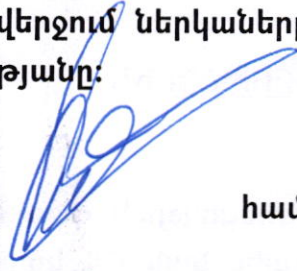 վերջում ներկաների
թյանը:
համ